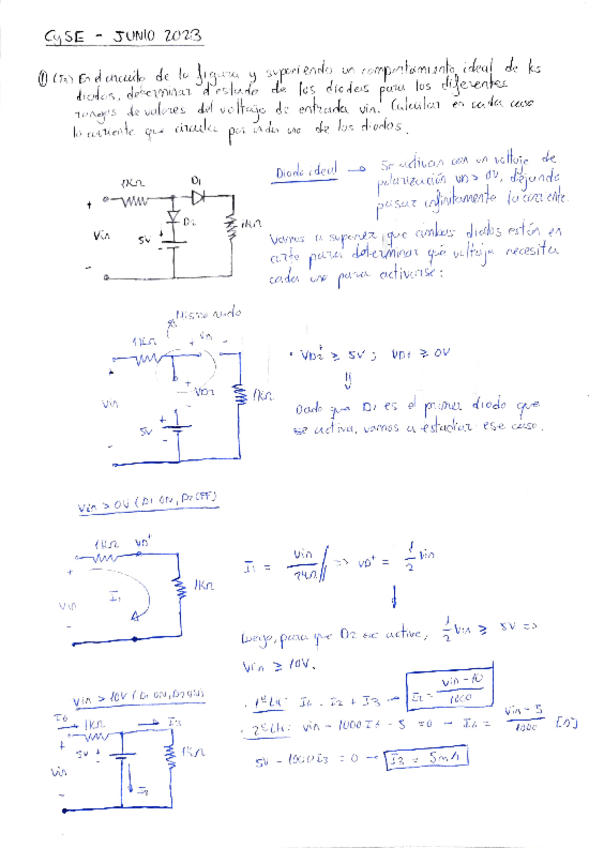 CySE - JUNIO 2023
① En el circuito de la figura y suponiendo un comportamiento ideal de los
diodos, determinar el estado de los diodos para los diferentes
rangos de valores del voltaje de entrada vin. Calcular en cada caso
la corriente que circula por cada uno de los diodos.
Diodo ideal → Se activan con un voltaje de
polarización VD > 0V, dejando
pasar infinitamente la corriente.
1KΩ
D1
+
D2
1KΩ
Vin
5V
-
Vamos a suponer que ambos diodos están en
corte para determinar qué voltaje necesita
cada uno para activarse:
Mismo nudo
1KΩ
+
-
VD2
1KΩ
Vin
5V
-
• VD2+ ≥ 5V ; VD1 ≥ 0V
⇓
Dado que D1 es el primer diodo que
se activa, vamos a estudiar ese caso.
Vin > 0V (D1 ON, D2 OFF)
1KΩ VD+
+
I1
1KΩ
Vin
-
I1 = Vin / 2kΩ => VD+ = 1/2 Vin
↓
Luego, para que D2 se active, 1/2 Vin ≥ 5V =>
Vin ≥ 10V.
Vin > 10V (D1 ON, D2 ON)
1KΩ
I3
+
5V
1KΩ
Vin
-
I2
I2 = Vin - 10 / 1000
Vin - 1000 - 5 = 0
Vin - 5 / 1000
5V - 1000 I3 = 0 → I3 = 5mA